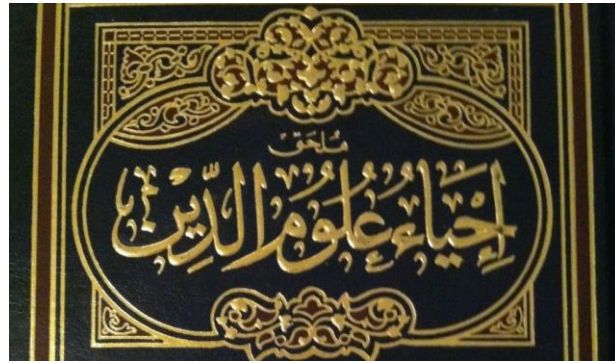 مُلحَق
إِحْيَاءُ عُلُومِ الدِّيْن